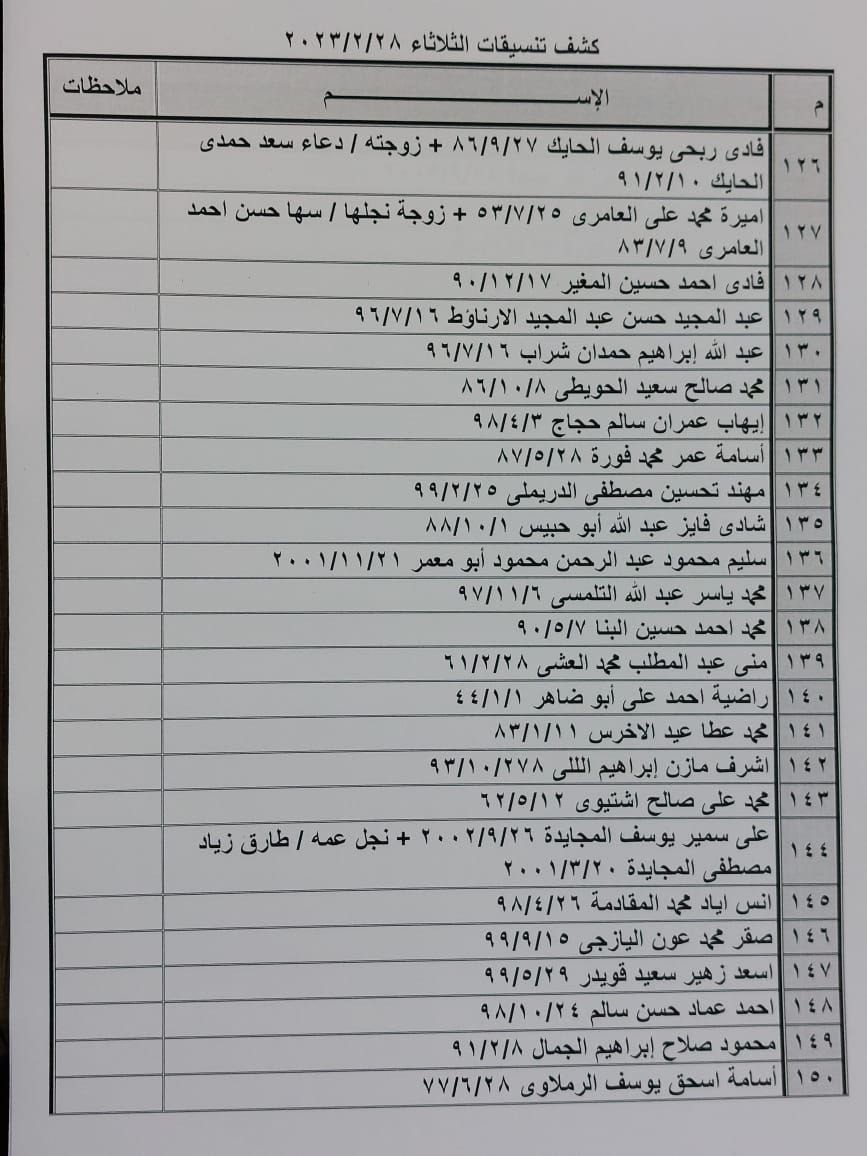 كشف تنسيقات الثلاثاء ٢٠٢٣/٢/٢٨
م الإســـــــم ملاحظات
١٢٦ فادى ربحى يوسف الحايك ٨٦/٩/٢٧ + زوجته / دعاء سعد حمدى
الحايك ٩١/٢/١٠
١٢٧ اميرة محمد على العامرى ٥٣/٧/٢٥ + زوجة نجلها / سها حسن احمد
العامرى ٨٣/٧/٩
١٢٨ فادى احمد حسين المغير ٩٠/١٢/١٧
١٢٩ عبد المجيد حسن عبد المجيد الارناؤط ٩٦/٧/١٦
١٣٠ عبد الله إبراهيم حمدان شراب ٩٦/٧/١٦
١٣١ محمد صالح سعيد الحويطى ٨٦/١٠/٨
١٣٢ إيهاب عمران سالم حجاج ٩٨/٤/٣
١٣٣ أسامة عمر محمد فورة ٨٧/٥/٢٨
١٣٤ مهند تحسين مصطفى الدريملى ٩٩/٢/٢٥
١٣٥ شادى فايز عبد الله أبو حبيس ٨٨/١٠/١
١٣٦ سليم محمود عبد الرحمن محمود أبو معمر ٢٠٠١/١١/٢١
١٣٧ محمد ياسر عبد الله التلمسى ٩٧/١١/٦
١٣٨ محمد احمد حسين البنا ٩٠/٥/٧
١٣٩ منى عبد المطلب محمد العشى ٦١/٢/٢٨
١٤٠ راضية احمد على أبو ضاهر ٤٤/١/١
١٤١ محمد عطا عيد الاخرس ٨٣/١/١١
١٤٢ اشرف مازن إبراهيم اللى ٩٣/١٠/٢٧٨
١٤٣ محمد على صالح اشتيوى ٦٢/٥/١٢
١٤٤ على سمير يوسف المجايدة ٢٠٠٢/٩/٢٦ + نجل عمه / طارق زياد
مصطفى المجايدة ٢٠٠١/٣/٢٠
١٤٥ انس اياد محمد المقادمة ٩٨/٤/٢٦
١٤٦ صقر محمد عون اليازجى ٩٩/٩/١٥
١٤٧ اسعد زهير سعيد قويدر ٩٩/٥/٢٩
١٤٨ احمد عماد حسن سالم ٩٨/١٠/٢٤
١٤٩ محمود صلاح إبراهيم الجمال ٩١/٢/٨
١٥٠ أسامة اسحق يوسف الرملاوى ٧٧/٦/٢٨